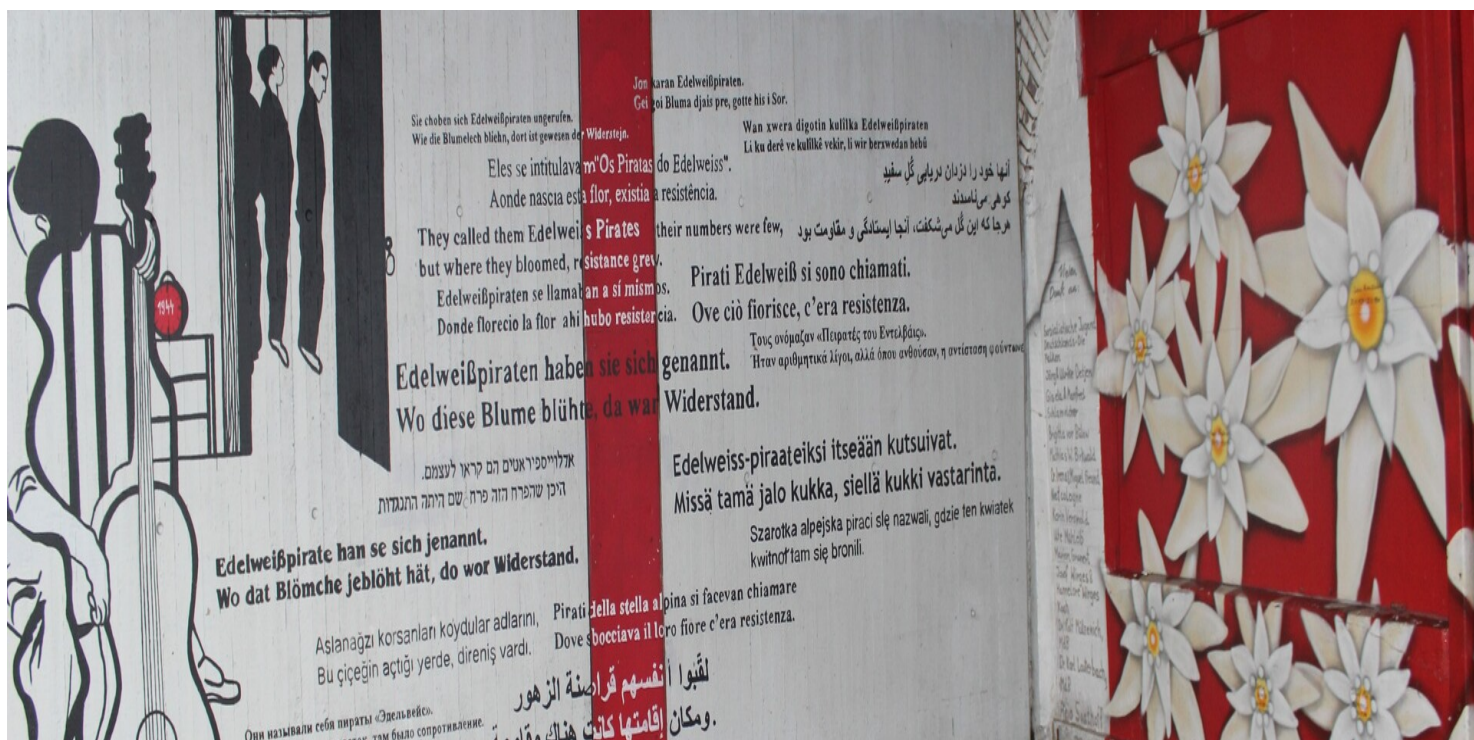 Jon karan Edelweißpiraten.
Gei goi Bluma djais pre, gotte his i Sor.
Sie choben sich Edelweißpiraten ungerufen.
Wie die Blumelech bliehn, dort ist gewesen der Widerstejn.
Wan xwera digotin kulîlka Edelweißpiraten
Li ku derê ve kulîlkê vekir, li wir berxwedan hebû
Eles se intitulavam "Os Piratas do Edelweiss".
Aonde nascia esta flor, existia a resistência.
آنها خود را دزدان دریایی گل سفید
کوهی می‌نامیدند
هرجا که این گل می‌شکفت، آنجا ایستادگی و مقاومت بود
They called them Edelweiss Pirates their numbers were few,
but where they bloomed, resistance grew.
Edelweißpiraten se llamaban a sí mismos.
Donde florecio la flor ahi hubo resistencia.
Pirati Edelweiß si sono chiamati.
Ove ciò fiorisce, c'era resistenza.
Τους ονόμαζαν «Πειρατές του Εντελβάις».
Ήταν αριθμητικά λίγοι, αλλά όπου ανθούσαν, η αντίσταση φούντωνε
1944
Edelweißpiraten haben sie sich genannt.
Wo diese Blume blühte, da war Widerstand.
אדלווייספיראטים הם קראו לעצמם.
היכן שהפרח הזה פרח, שם היתה התנגדות
Edelweiss-piraateiksi itseään kutsuivat.
Missä tämä jalo kukka, siellä kukki vastarinta.
Szarotka alpejska piraci się nazwali, gdzie ten kwiatek
kwitnoł tam się bronili.
Edelweißpirate han se sich jenannt.
Wo dat Blömche jeblöht hät, do wor Widerstand.
Aslanağzı korsanları koydular adlarını,
Bu çiçeğin açtığı yerde, direniş vardı.
Pirati della stella alpina si facevan chiamare
Dove sbocciava il loro fiore c'era resistenza.
لقَّبوا أنفسهم قراصنة الزهور
ومكان إقامتها كانت هناك مقاومة.
Они называли себя пираты «Эдельвейс».
там было сопротивление.
Vielen
Dank an:
Sozialistische Jugend
Deutschlands-Die
Falken